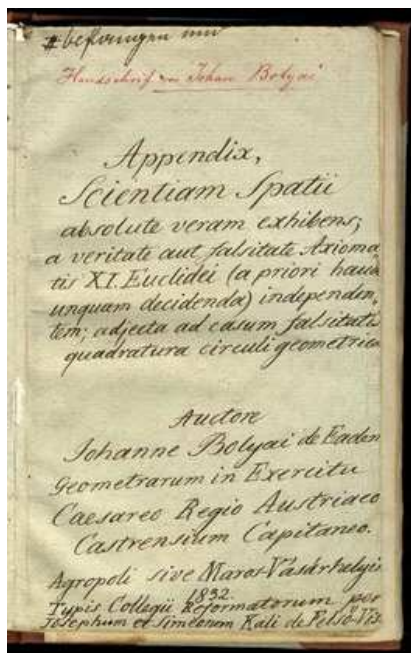 Handschrift von Johan Bolyai
Appendix,
Scientiam Spatii
absolute veram exhibens;
a veritate aut falsitate Axioma,
tis XI. Euclidei (a priori haud
unquam decidenda) independen,
tem; adjecta ad casum falsitatis
quadratura circuli geometrica
Auctore
Johanne Bolyai de Eadem
Geometrarum in Exercitu
Caesareo Regio Austriaco
Castrensium Capitaneo.
Agropoli sive Maros-Vásárhelyis
1832.
Typis Collegii Reformatorum per
Josephum et Simeonem Kali de Felső-Vis.